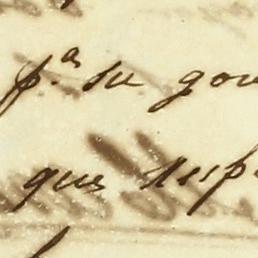 p.a su gou
que desp